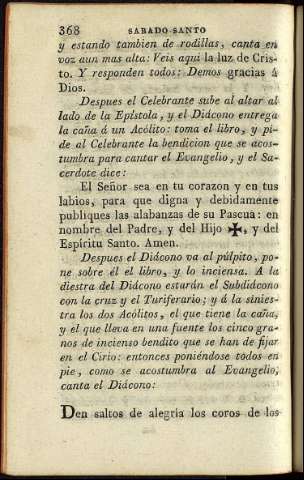 368 SABADO SANTO
y estando tambien de rodillas, canta en
voz aun mas alta: Veis aqui la luz de Cris-
to. Y responden todos: Demos gracias á
Dios.
Despues el Celebrante sube al altar al
lado de la Epístola, y el Diácono entrega
la caña á un Acólito: toma el libro, y pi-
de al Celebrante la bendicion que se acos-
tumbra para cantar el Evangelio, y el Sa-
cerdote dice:
El Señor sea en tu corazon y en tus
labios, para que digna y debidamente
publiques las alabanzas de su Pascua: en
nombre del Padre, y del Hijo ✠, y del
Espíritu Santo. Amen.
Despues el Diácono va al púlpito, po-
ne sobre él el libro, y lo inciensa. A la
diestra del Diácono estarán el Subdiácono
con la cruz y el Turiferario; y á la sinies-
tra los dos Acólitos, el que tiene la caña,
y el que lleva en una fuente los cinco gra-
nos de incienso bendito que se han de fijar
en el Cirio: entonces poniéndose todos en
pie, como se acostumbra al Evangelio,
canta el Diácono:
Den saltos de alegría los coros de los